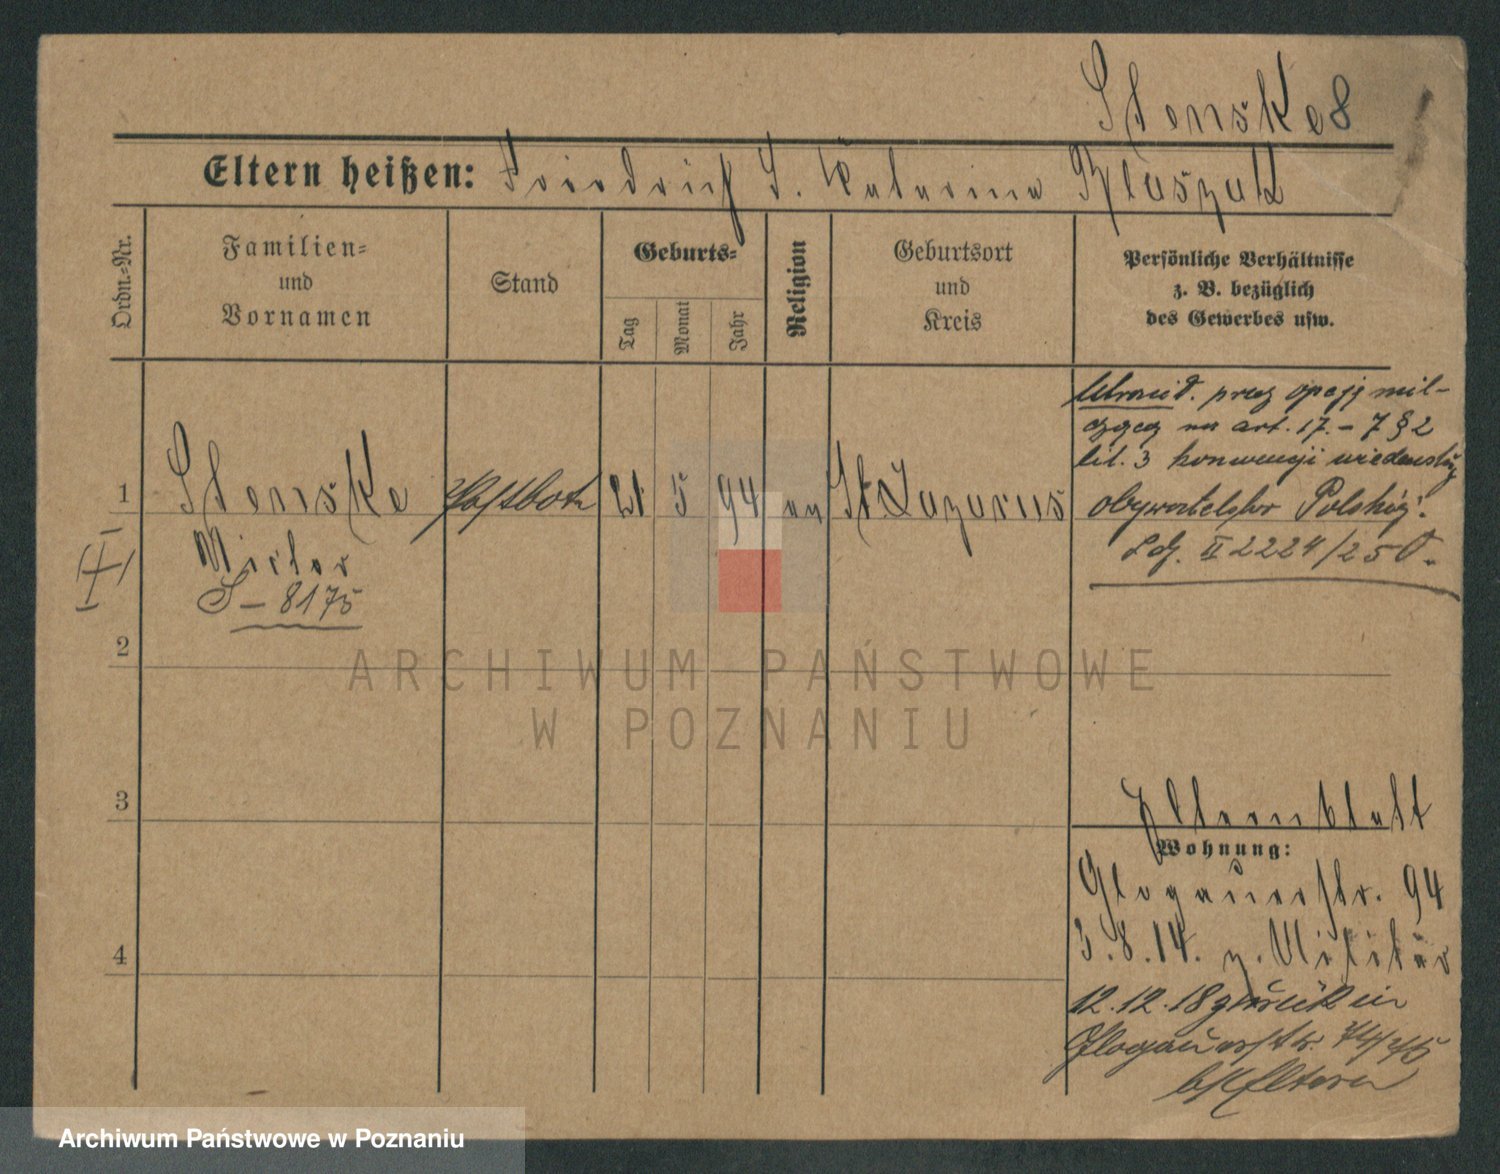 Stenske 8
Eltern heißen: Friedrich S. Katarina
Ordn.=Nr.
Familien=
und
Vornamen
Stand
Geburts=
Tag
Monat
Jahr
Religion
Geburtsort
und
Kreis
Persönliche Verhältnisse
z. B. bezüglich
des Gewerbes usw.
1
Stenske
Postbote
21 5 94
St. Lazarus
S – 8175
przez opcję mil-
czącą na art. 17. – 7 § 2
lit. 3 konwencji wiedeńskiej
obywatelstwo Polskie.
L.dz. II 2224/25
2
3
4
Elternblatt
Wohnung:
Glogauerstr. 94
3.8.14. z. Militär
12.12.18 zurück in
Glogauerstr.
Eltern
ARCHIWUM PAŃSTWOWE
W POZNANIU
Archiwum Państwowe w Poznaniu